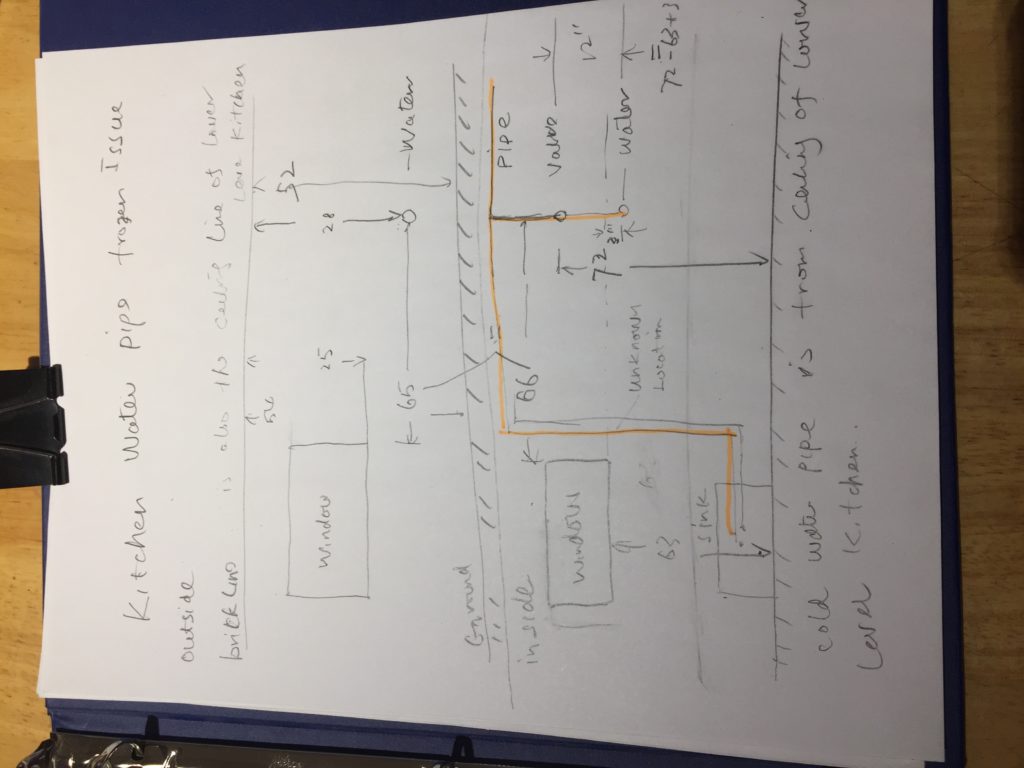 Kitchen Water pipe frozen Issue
outside
brick line is also the ceiling line of Lower
Level Kitchen
54
52
25
28
window
65
Water
Ground
inside
Pipe
66
Valve
12"
72
3"
Water
72 = 63+3
window
Unknown
Location
63
sink
cold water pipe is from ceiling of lower
Level Kitchen.